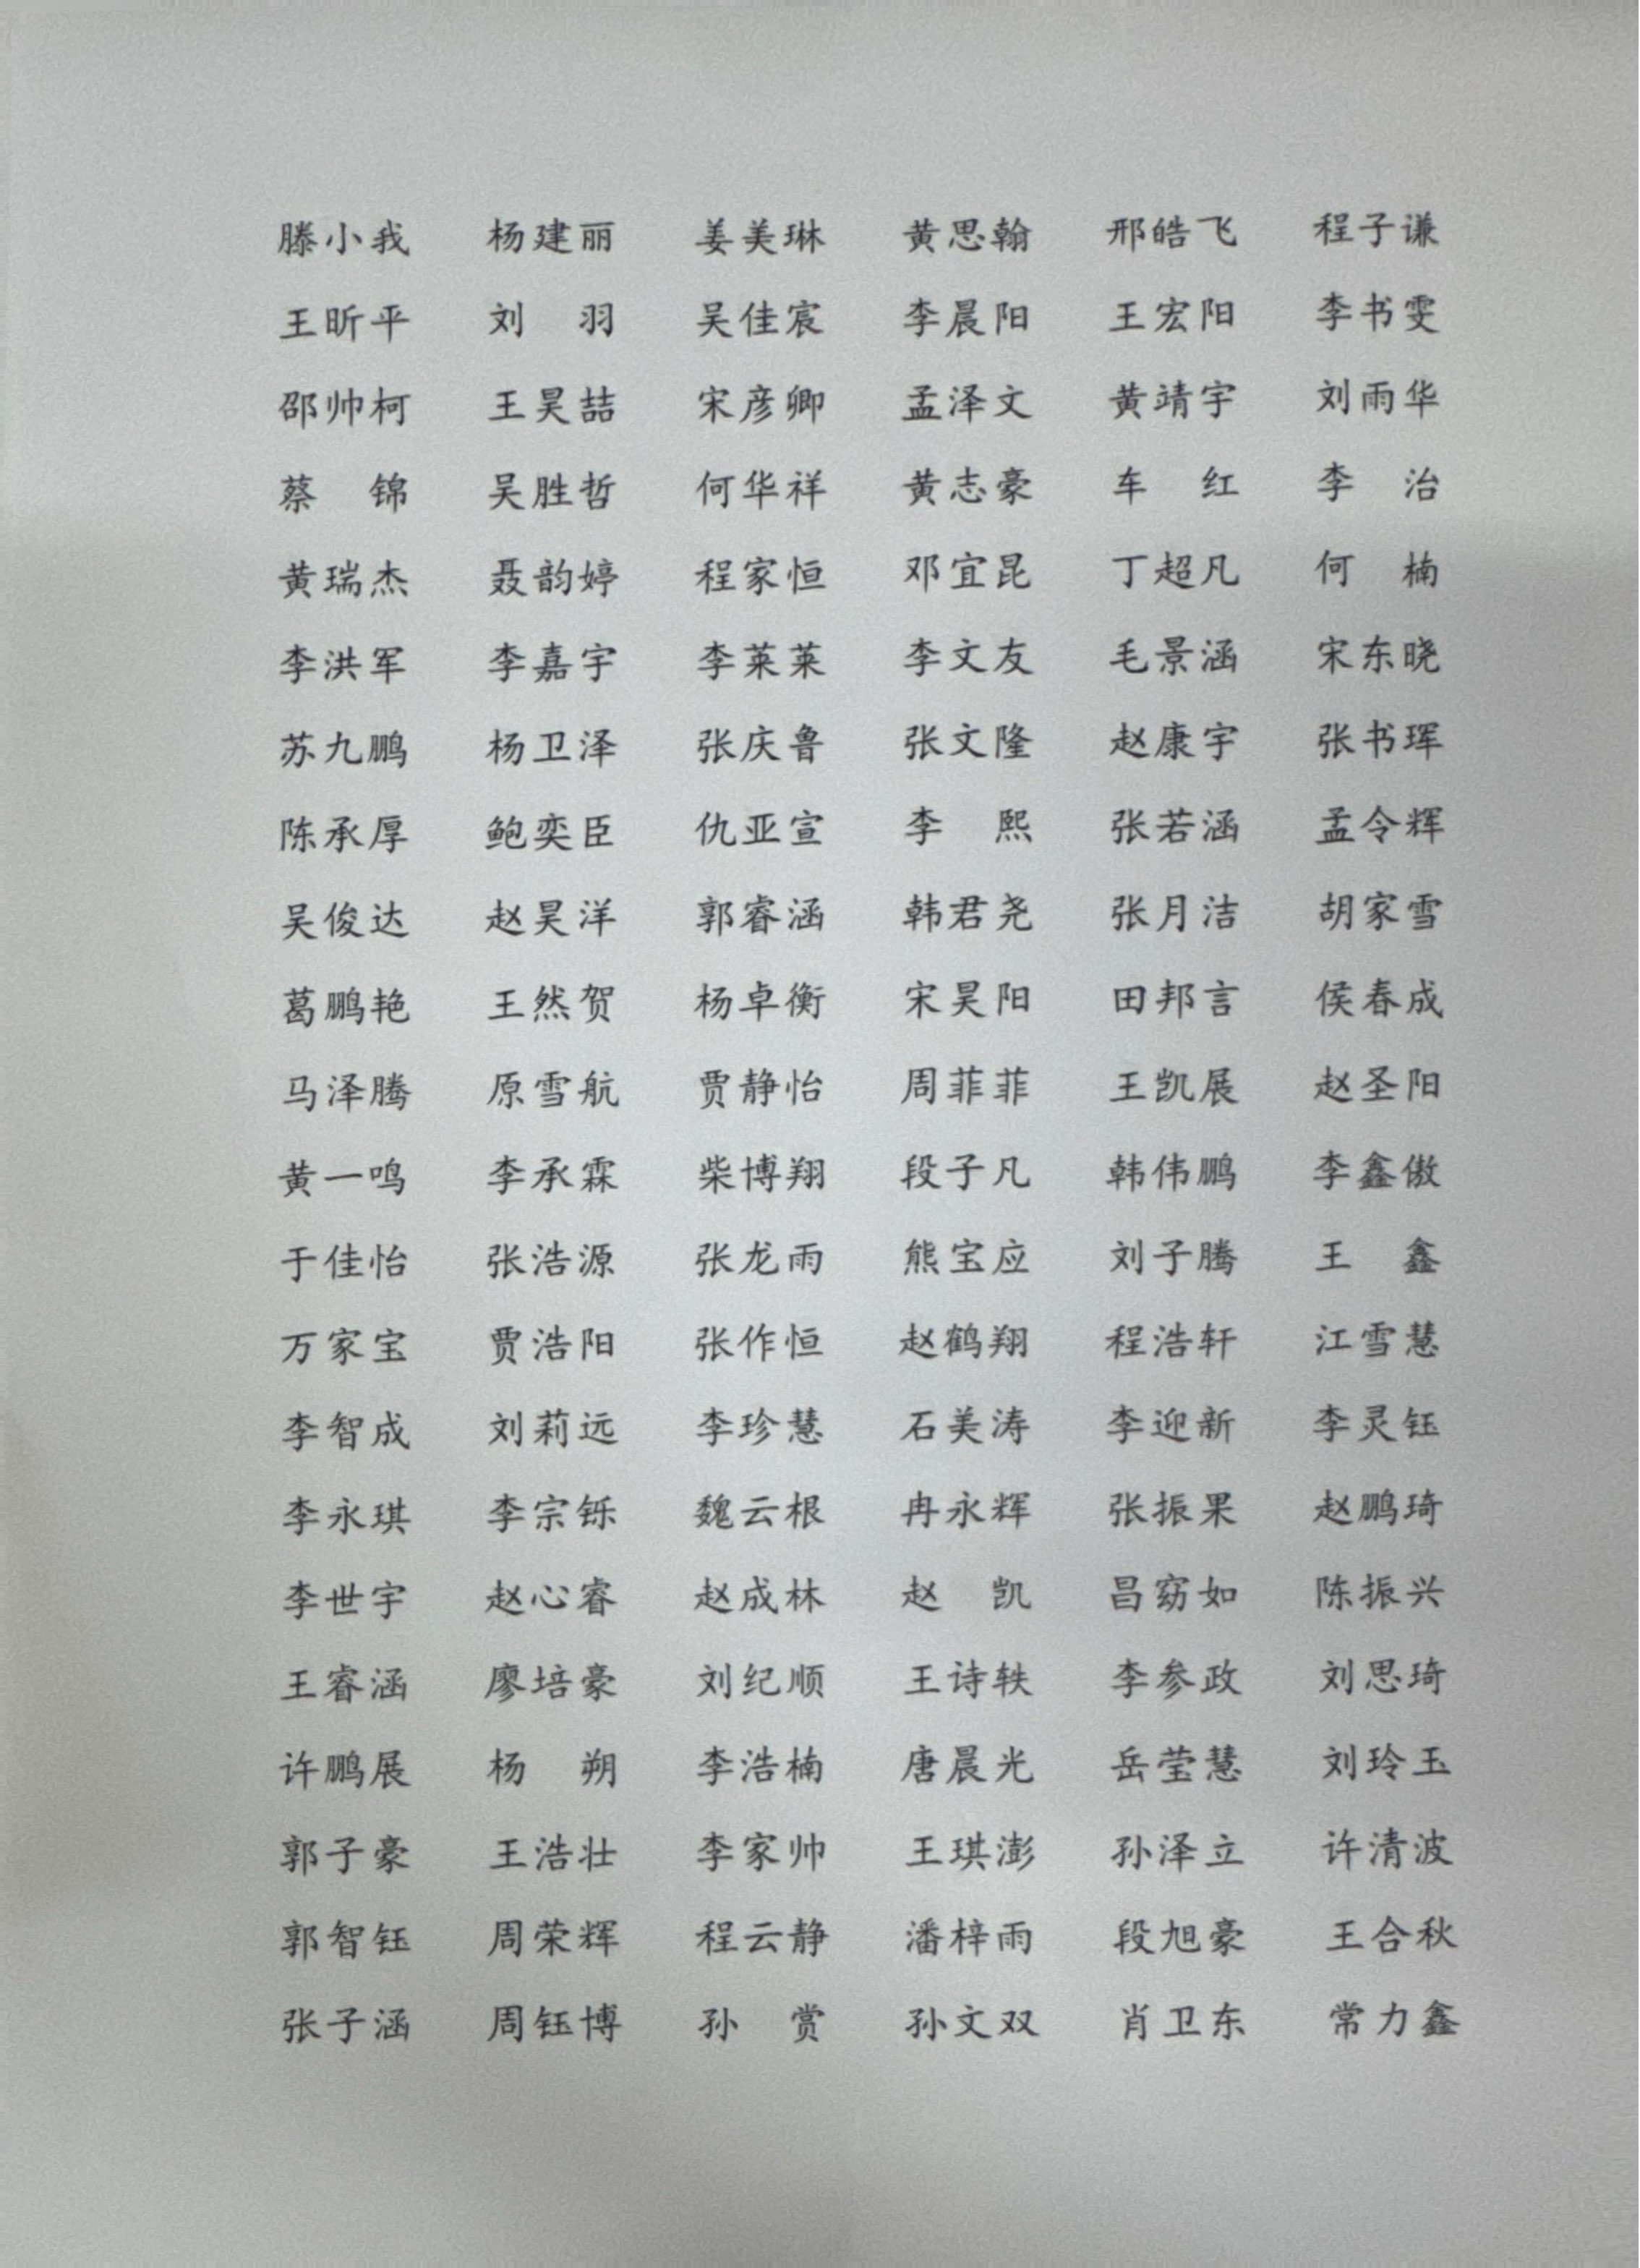 滕小我 杨建丽 姜美琳 黄思翰 邢皓飞 程子谦
王昕平 刘　羽 吴佳宸 李晨阳 王宏阳 李书雯
邵帅柯 王昊喆 宋彦卿 孟泽文 黄靖宇 刘雨华
蔡　锦 吴胜哲 何华祥 黄志豪 车　红 李　治
黄瑞杰 聂韵婷 程家恒 邓宜昆 丁超凡 何　楠
李洪军 李嘉宇 李莱莱 李文友 毛景涵 宋东晓
苏九鹏 杨卫泽 张庆鲁 张文隆 赵康宇 张书珲
陈承厚 鲍奕臣 仇亚宣 李　熙 张若涵 孟令辉
吴俊达 赵昊洋 郭睿涵 韩君尧 张月洁 胡家雪
葛鹏艳 王然贺 杨卓衡 宋昊阳 田邦言 侯春成
马泽腾 原雪航 贾静怡 周菲菲 王凯展 赵圣阳
黄一鸣 李承霖 柴博翔 段子凡 韩伟鹏 李鑫傲
于佳怡 张浩源 张龙雨 熊宝应 刘子腾 王　鑫
万家宝 贾浩阳 张作恒 赵鹤翔 程浩轩 江雪慧
李智成 刘莉远 李珍慧 石美涛 李迎新 李灵钰
李永琪 李宗铄 魏云根 冉永辉 张振果 赵鹏琦
李世宇 赵心睿 赵成林 赵　凯 昌窈如 陈振兴
王睿涵 廖培豪 刘纪顺 王诗轶 李参政 刘思琦
许鹏展 杨　朔 李浩楠 唐晨光 岳莹慧 刘玲玉
郭子豪 王浩壮 李家帅 王琪澎 孙泽立 许清波
郭智钰 周荣辉 程云静 潘梓雨 段旭豪 王合秋
张子涵 周钰博 孙　赏 孙文双 肖卫东 常力鑫